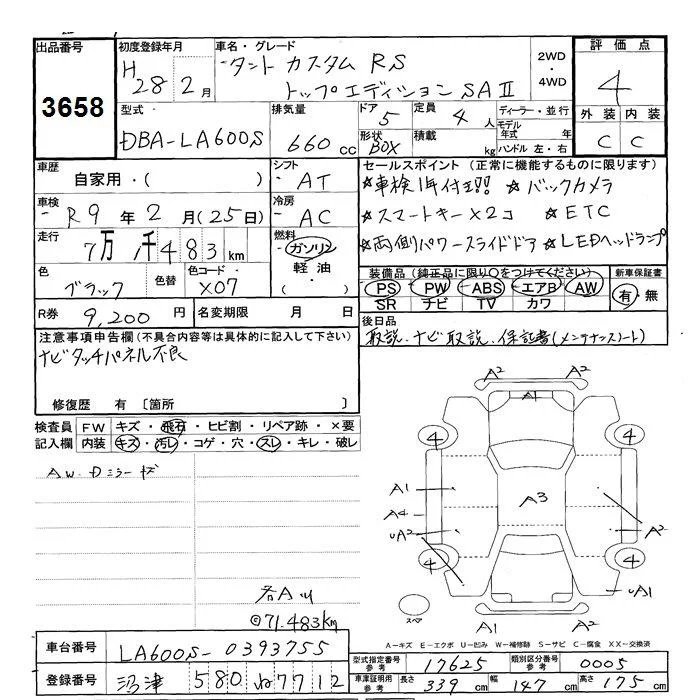 出品番号
3658
初度登録年月
H28年2月
車名・グレード
タント カスタム RS
トップエディション SAⅡ
2WD
・
4WD
評価点
4
外装 内装
C C
型式
DBA-LA600S
排気量
660 cc
ドア
5
定員
4人
形状
BOX
積載
kg
ディーラー・並行
モデル
年式 年
ハンドル 左・右
車歴
自家用・( )
車検
R9年2月(25日)
走行
7万1千483km
色
ブラック
色替
色コード
X07
シフト
AT
冷房
AC
燃料
ガソリン
軽油
・( )
R券
9,200円
名変期限 月 日
セールスポイント(正常に機能するものに限ります)
☆車検1年付!!! ☆バックカメラ
☆スマートキー×2コ ☆ETC
☆両側パワースライドドア ☆LEDヘッドランプ
装備品(純正品に限り○をつけてください)
PS・PW・ABS・エアB・AW
SR ナビ TV カワ
新車保証書
有・無
後日品
取説、ナビ取説、保証書(メンテナンスノート)
注意事項申告欄(不具合内容等は具体的に記入して下さい)
ナビタッチパネル不良
修復歴 有〔箇所 〕
検査員
記入欄
FW キズ・飛石・ヒビ割・リペア跡・×要
内装 キズ・汚レ・コゲ・穴・スレ・キレ・破レ
◎71.483km
A² A²
A1
4 4
A1
A4
A3
uA² A²
4 4
uA1
A1 A²
スペア
A-キズ E-エクボ U-凹み W-補修跡 S-サビ C-腐食 XX-交換済
車台番号
LA600S-0393755
登録番号
沼津 580 ぬ 7712
型式指定番号
参考
17625
類別区分番号
参考
0005
車庫証明用
参考
長さ 339cm 幅 147cm 高さ 175cm